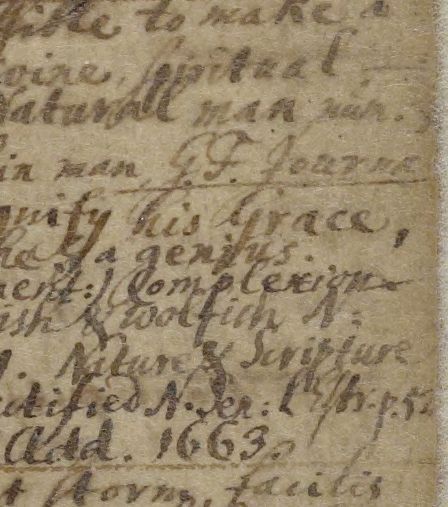 ible to make a
vine, spiritual
Natural man
in man, G.F. Journa
gnify his Grace,
he : a genius.
ment:) Complexion
ish & woolfish N:
Nature & Scripture
ctified N. Ser: p. 5
Add. 1663.
t storm, facilis